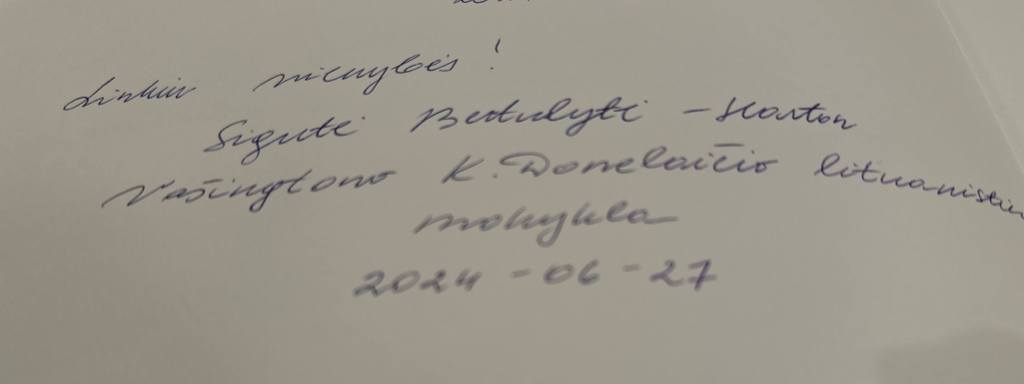 Linkiu vienybės!
Sigutė Betulytė - Horton
Vašingtono K. Donelaičio lituanistin
mokykla
2024 - 06 - 27